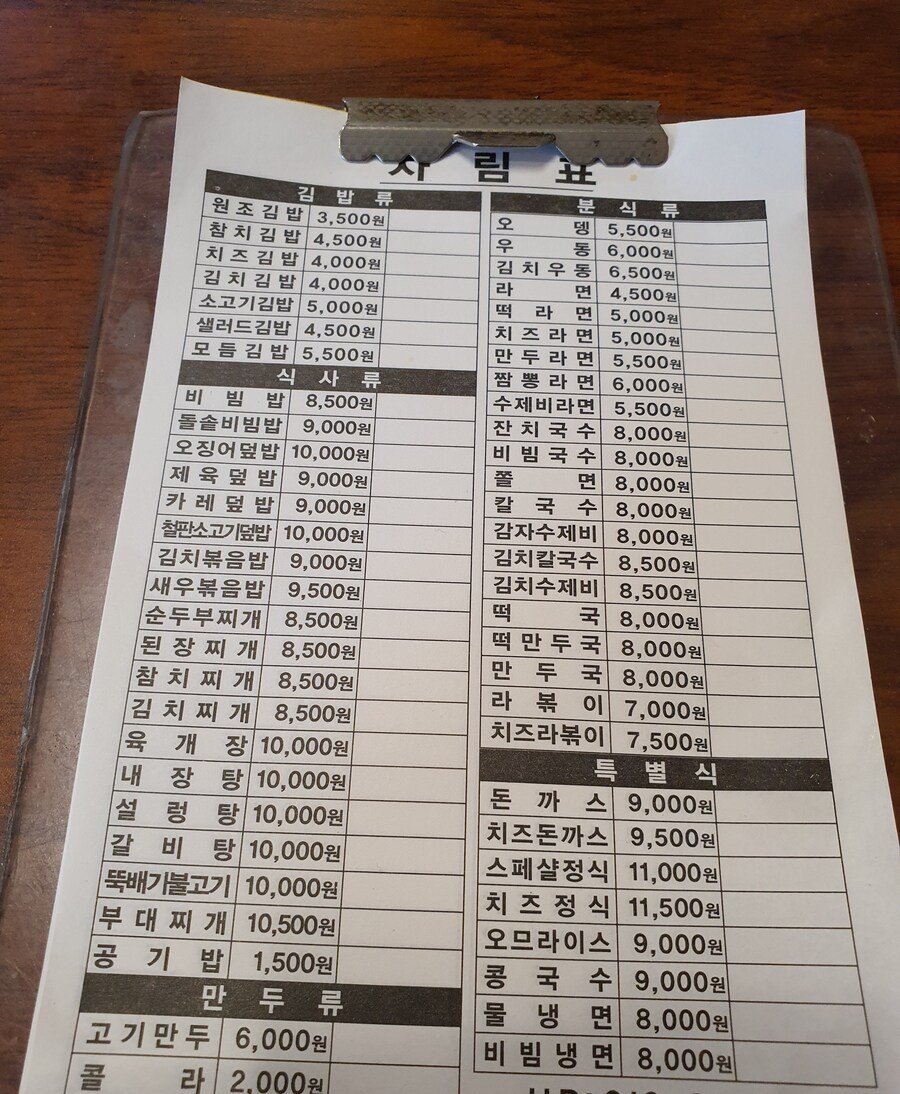 차 림 표
김 밥 류
원조김밥 3,500원
참치김밥 4,500원
치즈김밥 4,000원
김치김밥 4,000원
소고기김밥 5,000원
샐러드김밥 4,500원
모듬김밥 5,500원
식 사 류
비 빔 밥 8,500원
돌솥비빔밥 9,000원
오징어덮밥 10,000원
제육덮밥 9,000원
카레덮밥 9,000원
철판소고기덮밥 10,000원
김치볶음밥 9,000원
새우볶음밥 9,500원
순두부찌개 8,500원
된장찌개 8,500원
참치찌개 8,500원
김치찌개 8,500원
육 개 장 10,000원
내 장 탕 10,000원
설 렁 탕 10,000원
갈 비 탕 10,000원
뚝배기불고기 10,000원
부대찌개 10,500원
공 기 밥 1,500원
만 두 류
고기만두 6,000원
콜 라 2,000원
분 식 류
오 뎅 5,500원
우 동 6,000원
김치우동 6,500원
라 면 4,500원
떡 라 면 5,000원
치즈라면 5,000원
만두라면 5,500원
짬뽕라면 6,000원
수제비라면 5,500원
잔치국수 8,000원
비빔국수 8,000원
쫄 면 8,000원
칼 국 수 8,000원
감자수제비 8,000원
김치칼국수 8,500원
김치수제비 8,500원
떡 국 8,000원
떡만두국 8,000원
만 두 국 8,000원
라 볶 이 7,000원
치즈라볶이 7,500원
특 별 식
돈 까 스 9,000원
치즈돈까스 9,500원
스페샬정식 11,000원
치즈정식 11,500원
오므라이스 9,000원
콩 국 수 9,000원
물 냉 면 8,000원
비빔냉면 8,000원